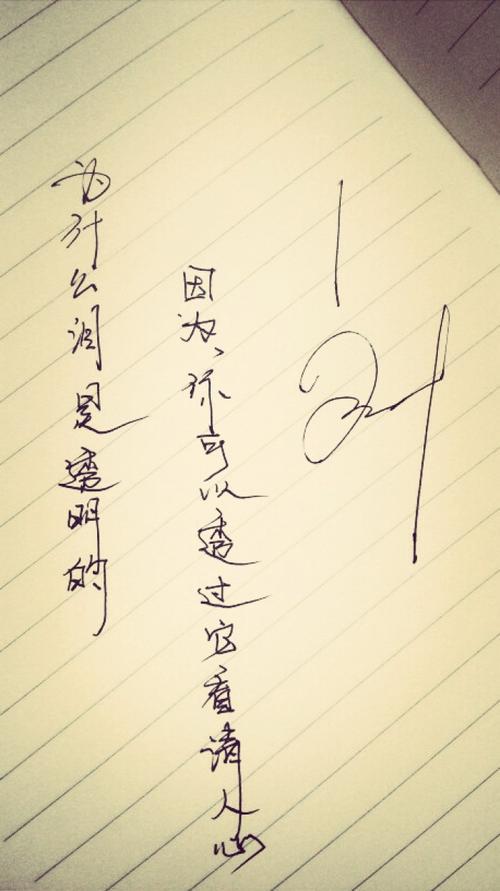 为什么泪是透明的
因为、你可以透过它看请人心